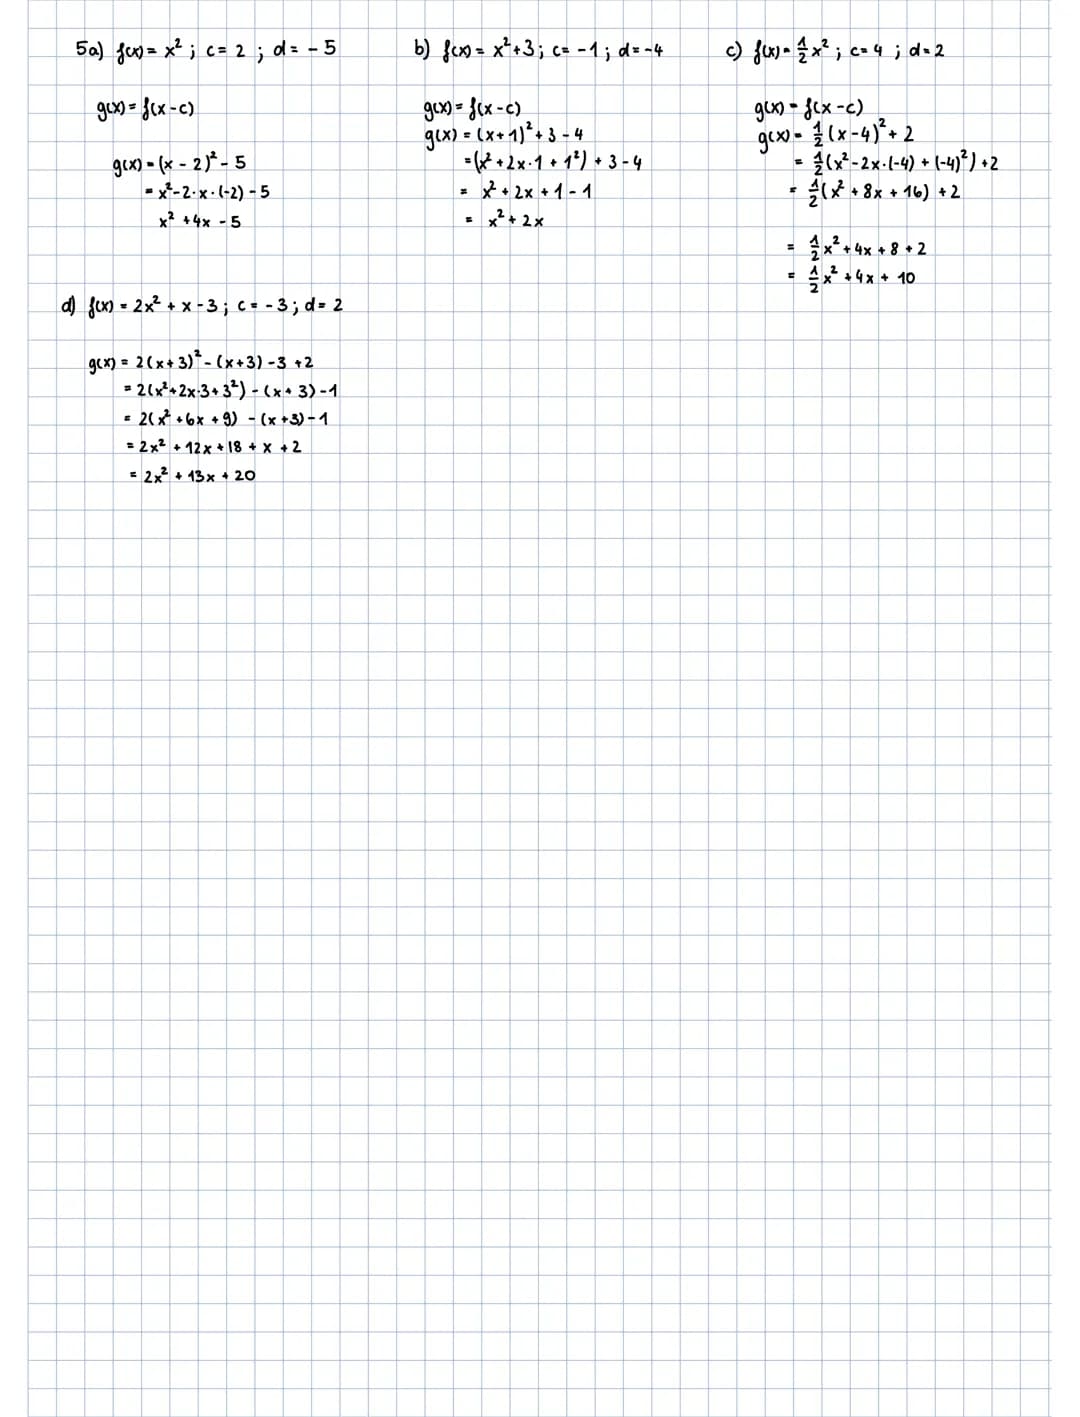 5a) f(x) = x² ; c = 2 ; d = - 5
g(x) = f(x - c)
g(x) = (x - 2)² - 5
= x² - 2 · x · (-2) - 5
x² + 4x - 5
b) f(x) = x² + 3 ; c = -1 ; d = -4
g(x) = f(x - c)
g(x) = (x + 1)² + 3 - 4
= (x² + 2x · 1 + 1²) + 3 - 4
= x² + 2x + 1 - 1
= x² + 2x
c) f(x) = 1/2 x² ; c = 4 ; d = 2
g(x) = f(x - c)
g(x) = 1/2 (x - 4)² + 2
= 1/2 (x² - 2x · (-4) + (-4)²) + 2
= 1/2 (x² + 8x + 16) + 2
= 1/2 x² + 4x + 8 + 2
= 1/2 x² + 4x + 10
d) f(x) = 2x² + x - 3 ; c = - 3 ; d = 2
g(x) = 2(x + 3)² - (x + 3) - 3 + 2
= 2(x² + 2x · 3 + 3²) - (x + 3) - 1
= 2(x² + 6x + 9) - (x + 3) - 1
= 2x² + 12x + 18 + x + 2
= 2x² + 13x + 20